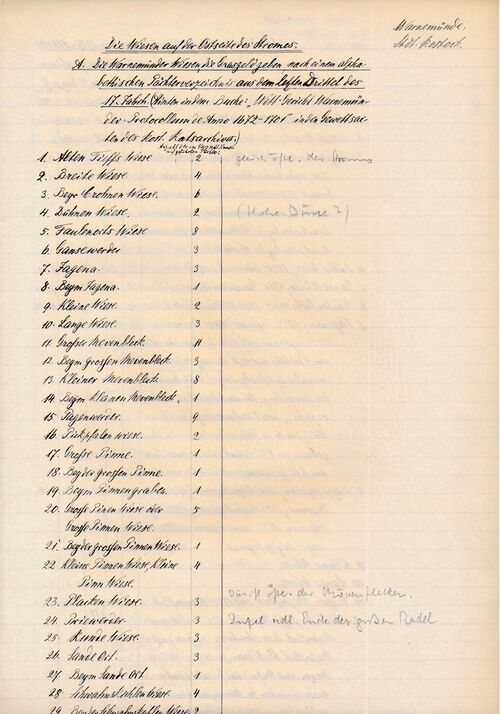 Warnemünde,
Stdt. Rostock.
Die Wiesen auf der Ostseite des Stromes.
A. Die Warnemünder Wiesen, die Grasgeld geben nach einem alpha-
betischen Pächterverzeichnis aus dem letzten Drittel des
17. Jahrh. (Hinten in dem Buche: „Wett-Gericht Warnemün-
der Protocollum de Anno 1672-1701" in den Gewettsac-
ten des Rost. Ratsarchivs.)
1. Alten Tieffs Wiese 2
2. Breite Wiese 4
3. Beyr Crohnen Wiese 6
4. Dühnen Wiese. 2 (Hohe Düne?)
5. Faulenorts Wiese 8
6. Gansewerder 3
7. Jagena. 3
8. Beym Jagena. 1
9. Kleine Wiese. 2
10. Lange Wiese. 3
11. Großer Mevenbleck. 11
12. Beym grossen Mevenbleck. 3
13. Kleiner Mevenbleck 8
14. Beym kleinen Mevenbleck. 1
15. Pagenwerder. 9
16. Pickpfalen wiese. 2
17. Große Pinne. 1
18. Bey der grossen Pinne. 1
19. Beym Pinnengraben. 1
20. Große Pinen Wiese oder 5
Grosse Pinnen Wiese.
21. Bey der grossen Pinnen Wiese. 1
22 Kleine Pinnen Wiese, Kleine 4
Pinn Wiese.
23. Placken Wiese. 3
24. 3 Insel ndl. Ende des großen Radel
25. Runde Wiese. 3
26. Sande Ort. 3
27. Beym Sande Ort. 1
28. Schwahnskuhlen Wiese 4
29. 2